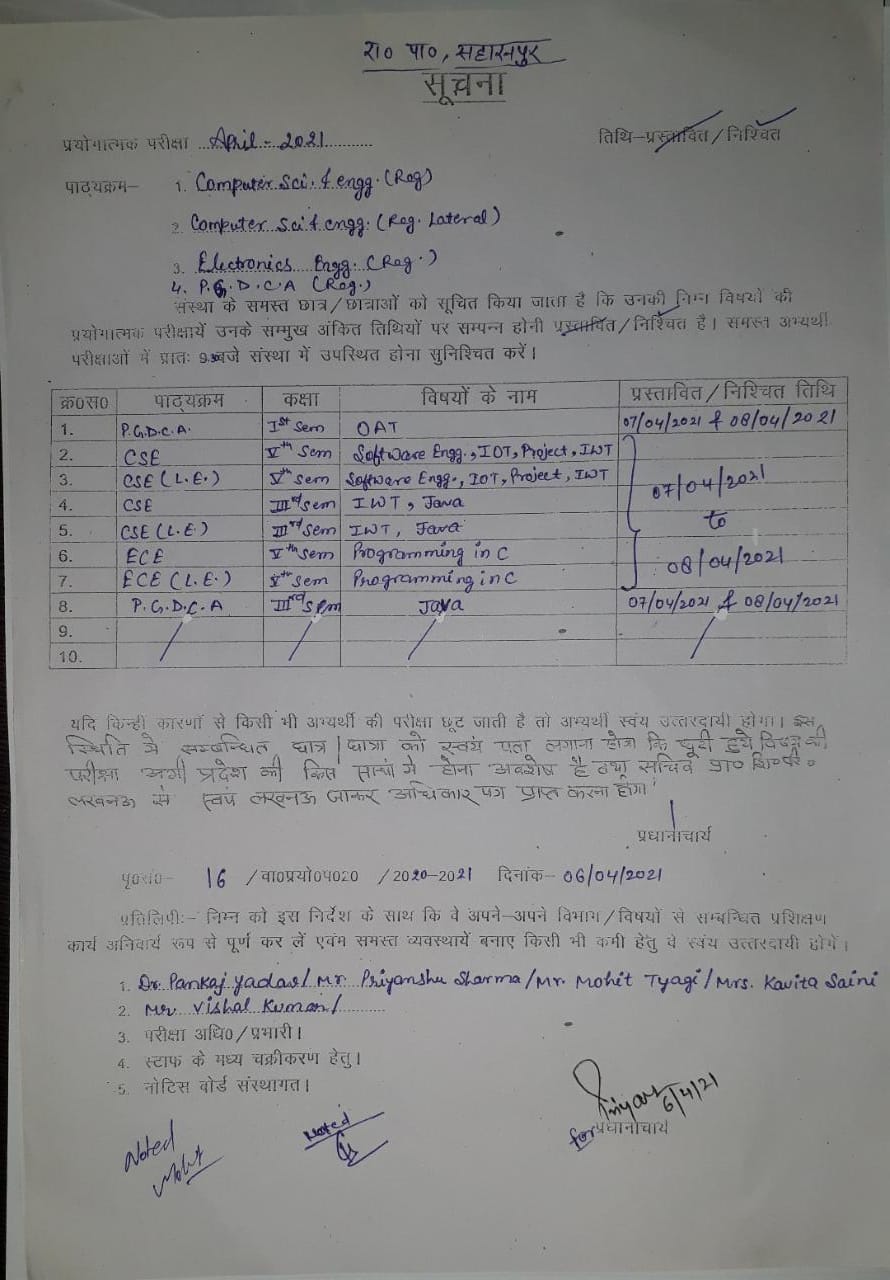 रा० पा०, सहारनपुर
सूचना
प्रयोगात्मक परीक्षा ...April - 2021...........
तिथि–प्रस्तावित/निश्चित
पाठ्यक्रम– 1. Computer Sci. & engg. (Reg)
2. Computer Sci & engg. (Reg. Lateral)
3. Electronics Engg. (Reg.)
4. P.G.D.C.A (Reg.)
संस्था के समस्त छात्र/छात्राओं को सूचित किया जाता है कि उनकी निम्न विषयों की
प्रयोगात्मक परीक्षायें उनके सम्मुख अंकित तिथियों पर सम्पन्न होनी प्रस्तावित/निश्चित है। समस्त अभ्यर्थी
परीक्षाओं में प्रातः बजे संस्था में उपस्थित होना सुनिश्चित करें।
क्र०स० पाठ्यक्रम कक्षा विषयों के नाम प्रस्तावित/निश्चित तिथि
1. P.G.D.C.A. Ist Sem OAT 07/04/2021 & 08/04/2021
2. CSE Vth Sem Software Engg., IOT, Project, IWT
3. CSE (L.E.) Vth Sem Software Engg., IOT, Project, IWT
07/04/2021
4. CSE IIIrd Sem IWT, Java
to
5. CSE (L.E.) IIIrd Sem IWT, Java
6. ECE Vth Sem Programming in C
08/04/2021
7. ECE (L.E.) Vth Sem Programming in C
8. P.G.D.C.A IIIrd Sem Java 07/04/2021 & 08/04/2021
9.
10.
यदि किन्ही कारणों से किसी भी अभ्यर्थी की परीक्षा छूट जाती है तो अभ्यर्थी स्वंय उत्तरदायी होगा। इस
स्थिति में सम्बन्धित छात्र/छात्रा को स्वयं पता लगाना होगा कि छूटी हुये विषय की
परीक्षा अभी प्रदेश की किस संस्था में होना अवशेष है तथा सचिव प्रा० शि० परि०
लखनऊ से स्वयं लखनऊ जाकर अधिकार पत्र प्राप्त करना होगा।
प्रधानाचार्य
पृ०सं०– 16 /वा०प्रयो०प०20 /2020–2021 दिनांक– 06/04/2021
प्रतिलिपी:– निम्न को इस निर्देश के साथ कि वे अपने–अपने विभाग/विषयों से सम्बन्धित प्रशिक्षण
कार्य अनिवार्य रूप से पूर्ण कर लें एवंम समस्त व्यवस्थायें बनाए किसी भी कमी हेतु वे स्वंय उत्तरदायी होगें।
1. Dr. Pankaj Yadav/ Mr. Priyanshu Sharma/Mr. Mohit Tyagi/Mrs. Kavita Saini
2. Mr Vishal Kumar/
3. परीक्षा अधि०/प्रभारी।
4. स्टाफ के मध्य चक्रीकरण हेतु।
5. नोटिस बोर्ड संस्थागत।
6/4/21
for प्रधानाचार्य
Noted
Noted
Mohit